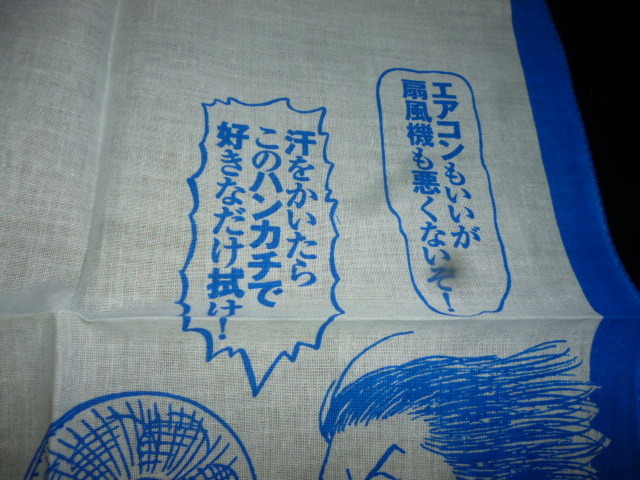 エアコンもいいが
扇風機も悪くないぞ！
汗をかいたら
このハンカチで
好きなだけ拭け！